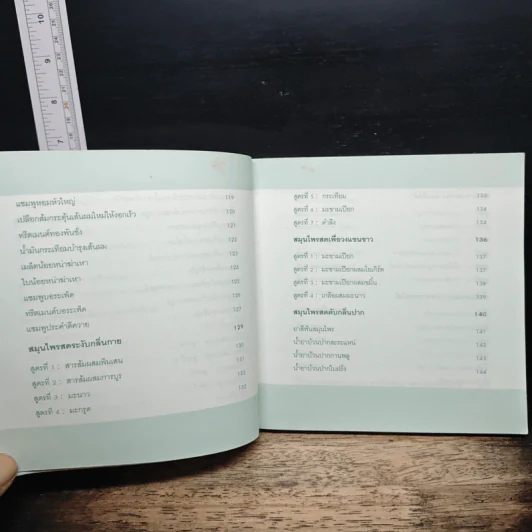 แชมพูหอมหัวใหญ่ 119
เปลือกส้มกระตุ้นเส้นผมใหม่ให้งอกเร็ว 120
ทรีตเมนต์ทองพันชั่ง 121
น้ำมันกระเทียมบำรุงเส้นผม 122
เมล็ดน้อยหน่าฆ่าเหา 123
ใบน้อยหน่าฆ่าเหา 125
แชมพูบอระเพ็ด 126
ทรีตเมนต์บอระเพ็ด 127
แชมพูประคำดีควาย
สมุนไพรสดระงับกลิ่นกาย 129
สูตรที่ 1 : สารส้มผสมพิมเสน 130
สูตรที่ 2 : สารส้มผสมการบูร 131
สูตรที่ 3 : มะนาว 132
สูตรที่ 4 : มะกรูด
สูตรที่ 5 : กระเทียม 133
สูตรที่ 6 : มะขามเปียก 134
สูตรที่ 7 : ตำลึง 134
สมุนไพรสดเพื่อวงแขนขาว 136
สูตรที่ 1 : มะขามเปียก 137
สูตรที่ 2 : มะขามเปียกผสมโยเกิร์ต 137
สูตรที่ 3 : มะขามเปียกผสมขมิ้น 138
สูตรที่ 4 : เกลือผสมมะนาว 139
สมุนไพรสดดับกลิ่นปาก 140
ยาสีฟันสมุนไพร 141
น้ำยาบ้วนปากสะระแหน่ 142
น้ำยาบ้วนปากกานพลู 143
น้ำยาบ้วนปากใบฝรั่ง 144
7
8
9
10